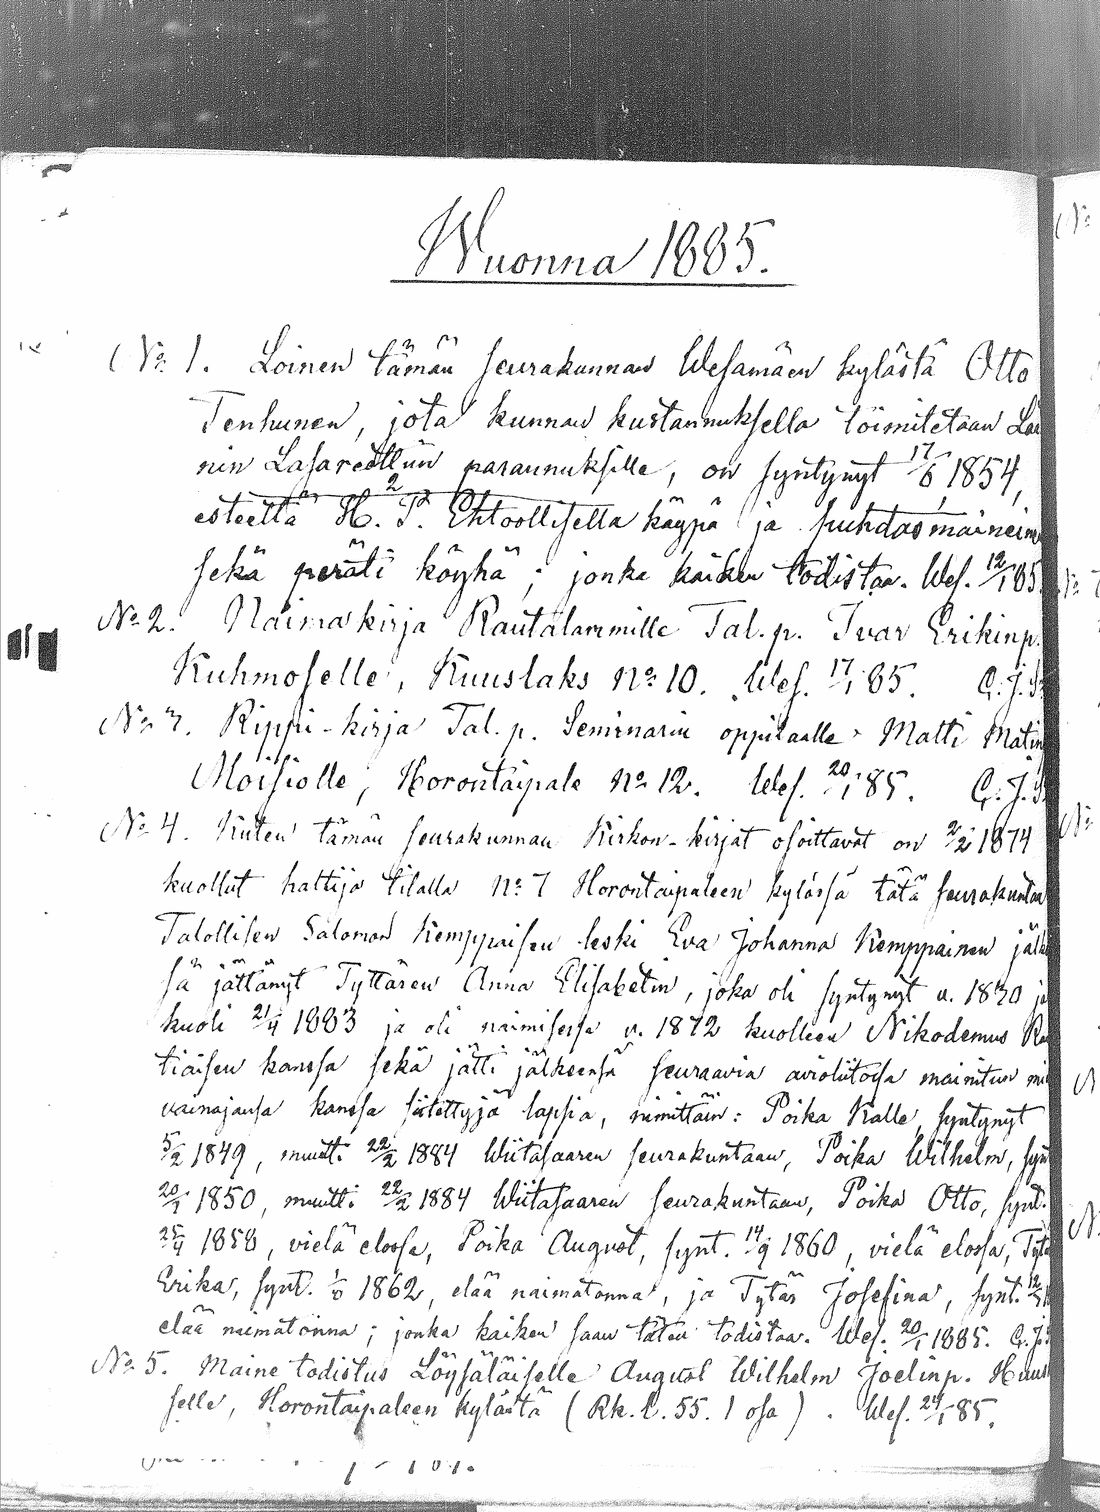 Wuonna 1885.
No 1. Loinen tämän seurakunnan Wesamäen kylästä Otto
Tenhunen, jota kunnan kustannuksella toimitetaan Lää
nin Lasarettiin parannukselle, on syntynyt 17/6 1854,
esteettä H. P. Ehtoollisella käypä ja puhdasmainein
sekä peräti köyhä; jonka kaiken todistaa. Wes. 12/1 85.
No 2. Naimakirja Rautalammille Tal. p. Ivar Erikinp.
Kuhmoselle, Kuuslaks No 10. Wes. 17/1 85. C. J. S
No 3. Rippi-kirja Tal. p. Seminarin oppilaalle Matti Matin
Moisiolle, Horontaipale No 12. Wes. 20/1 85. C. J. S
No 4. Kuten tämän seurakunnan Kirkon-kirjat osoittavat on 2/2 1874
kuollut haltija tilalla No 7 Horontaipaleen kylässä tätä seurakuntaa
Talollisen Salomon Kemppaisen leski Eva Johanna Kemppainen jälke
sä jättänyt Tyttären Anna Elisabetin, joka oli syntynyt v. 1830 ja
kuoli 21/4 1883 ja oli naimisessa v. 1872 kuolleen Nikodemus
tiaisen kanssa sekä jätti jälkeensä seuraavia avioliitossa mainitun mi
vainajansa kanssa siitettyjä lapsia, nimittäin: Poika Kalle, syntynyt
5/2 1849, muutti 22/2 1884 Wiitasaaren seurakuntaan, Poika Wilhelm, syn
20/1 1850, muutti 22/2 1884 Wiitasaaren seurakuntaan, Poika Otto, synt.
25/4 1858, vielä elossa, Poika August, synt. 14/9 1860, vielä elossa, Tytä
Erika, synt. 1862, elää naimatonna, ja Tytär Josefina, synt.
elää naimatonna; jonka kaiken saan täten todistaa. Wes. 20/1 1885. C. J. S
No 5. Maine todistus Löysäläiselle August Wilhelm Joelinp.
selle, Horontaipaleen kylästä (Rk. l. 55. 1 osa). Wes. 24/1 85.